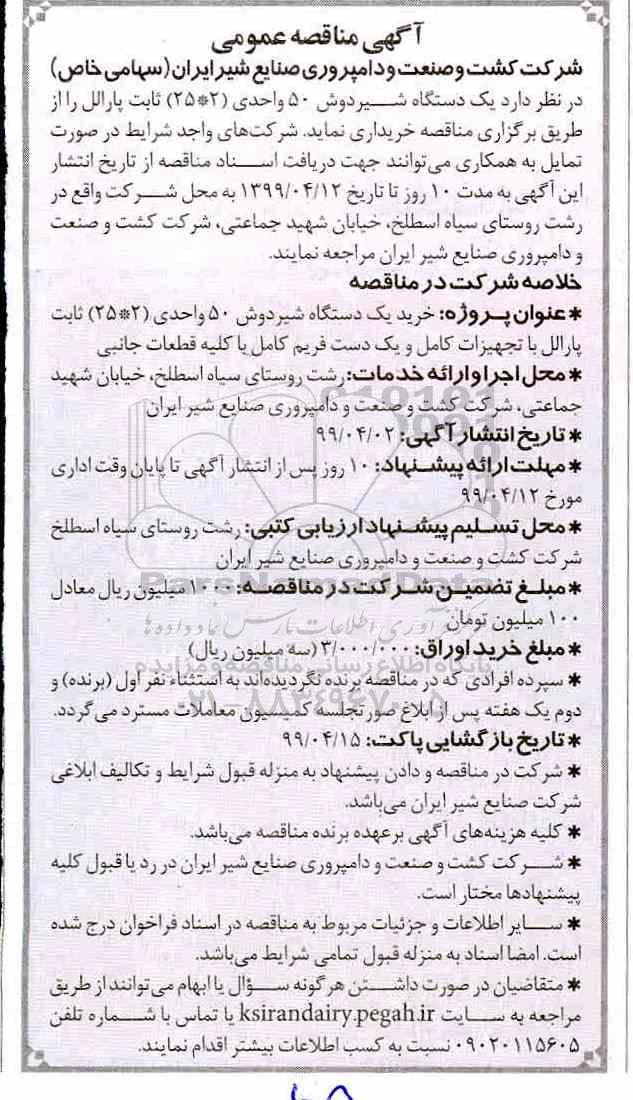 آگهی مناقصه عمومی
شرکت کشت و صنعت و دامپروری صنایع شیر ایران (سهامی خاص)
در نظر دارد یک دستگاه شیردوش ۵۰ واحدی (۲*۲۵) ثابت پارالل را از
طریق برگزاری مناقصه خریداری نماید. شرکت‌های واجد شرایط در صورت
تمایل به همکاری می‌توانند جهت دریافت اسناد مناقصه از تاریخ انتشار
این آگهی به مدت ۱۰ روز تا تاریخ ۱۳۹۹/۰۴/۱۲ به محل شرکت واقع در
رشت روستای سیاه اسطلخ، خیابان شهید جماعتی، شرکت کشت و صنعت
و دامپروری صنایع شیر ایران مراجعه نمایند.
خلاصه شرکت در مناقصه
* عنوان پروژه: خرید یک دستگاه شیردوش ۵۰ واحدی (۲*۲۵) ثابت
پارالل با تجهیزات کامل و یک دست فریم کامل با کلیه قطعات جانبی
* محل اجرا و ارائه خدمات: رشت روستای سیاه اسطلخ، خیابان شهید
جماعتی، شرکت کشت و صنعت و دامپروری صنایع شیر ایران
* تاریخ انتشار آگهی: ۹۹/۰۴/۰۲
* مهلت ارائه پیشنهاد: ۱۰ روز پس از انتشار آگهی تا پایان وقت اداری
مورخ ۹۹/۰۴/۱۲
* محل تسلیم پیشنهاد ارزیابی کتبی: رشت روستای سیاه اسطلخ
شرکت کشت و صنعت و دامپروری صنایع شیر ایران
ParsNamadData
* مبلغ تضمین شرکت در مناقصه: ۱۰۰۰ میلیون ریال معادل
۱۰۰ میلیون تومان
* مبلغ خرید اوراق: ۳/۰۰۰/۰۰۰ (سه میلیون ریال)
پایگاه اطلاع رسانی مناقصه و مزایده
* سپرده افرادی که در مناقصه برنده نگردیده‌اند به استثناء نفر اول (برنده) و
دوم یک هفته پس از ابلاغ صورتجلسه کمیسیون معاملات مسترد می‌گردد.
* تاریخ بازگشایی پاکت: ۹۹/۰۴/۱۵
* شرکت در مناقصه و دادن پیشنهاد به منزله قبول شرایط و تکالیف ابلاغی
شرکت صنایع شیر ایران می‌باشد.
* کلیه هزینه‌های آگهی بر عهده برنده مناقصه می‌باشد.
* شرکت کشت و صنعت و دامپروری صنایع شیر ایران در رد یا قبول کلیه
پیشنهادها مختار است.
* سایر اطلاعات و جزئیات مربوط به مناقصه در اسناد فراخوان درج شده
است. امضا اسناد به منزله قبول تمامی شرایط می‌باشد.
* متقاضیان در صورت داشتن هرگونه سؤال یا ابهام می‌توانند از طریق
مراجعه به سایت ksirandairy.pegah.ir یا تماس با شماره تلفن
۰۹۰۲۰۱۱۵۶۰۵ نسبت به کسب اطلاعات بیشتر اقدام نمایند.